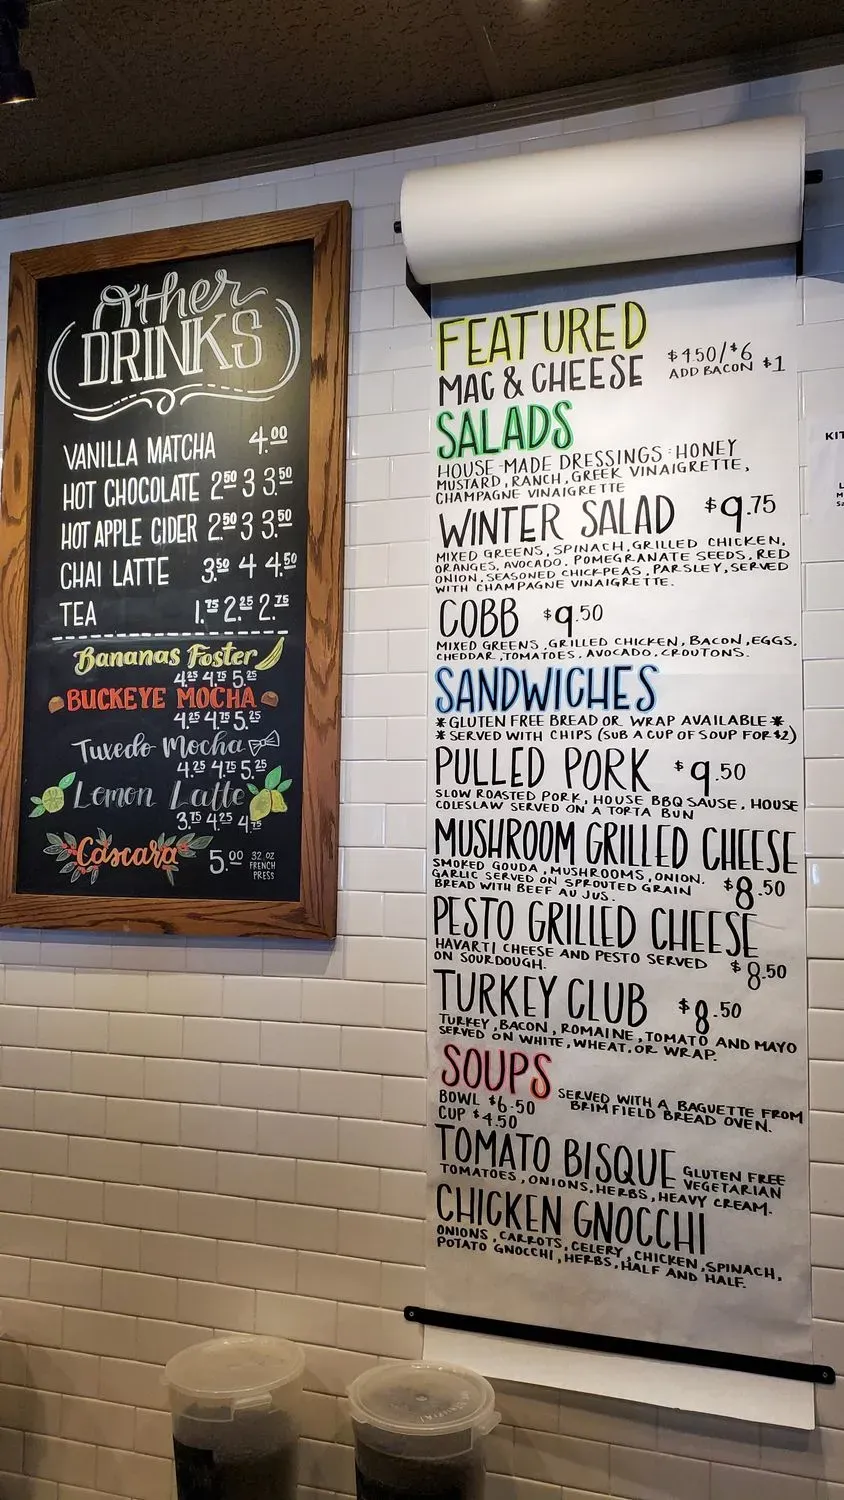 Other
DRINKS
VANILLA MATCHA 4.00
HOT CHOCOLATE 2.50 3 3.50
HOT APPLE CIDER 2.50 3 3.50
CHAI LATTE 3.50 4 4.50
TEA 1.75 2.25 2.75
Bananas Foster
4.25 4.75 5.25
BUCKEYE MOCHA
4.25 4.75 5.25
Tuxedo Mocha
4.25 4.75 5.25
Lemon Latte
3.75 4.25 4.75
Cascara 5.00 32 OZ
FRENCH
PRESS
FEATURED
MAC & CHEESE $4.50/$6
ADD BACON $1
SALADS
HOUSE-MADE DRESSINGS: HONEY
MUSTARD, RANCH, GREEK VINAIGRETTE,
CHAMPAGNE VINAIGRETTE
WINTER SALAD $9.75
MIXED GREENS, SPINACH, GRILLED CHICKEN,
ORANGES, AVOCADO, POMEGRANATE SEEDS, RED
ONION, SEASONED CHICKPEAS, PARSLEY, SERVED
WITH CHAMPAGNE VINAIGRETTE.
COBB $9.50
MIXED GREENS, GRILLED CHICKEN, BACON, EGGS,
CHEDDAR, TOMATOES, AVOCADO, CROUTONS.
SANDWICHES
*GLUTEN FREE BREAD OR WRAP AVAILABLE*
*SERVED WITH CHIPS (SUB A CUP OF SOUP FOR $2)
PULLED PORK $9.50
SLOW ROASTED PORK, HOUSE BBQ SAUSE, HOUSE
COLESLAW SERVED ON A TORTA BUN
MUSHROOM GRILLED CHEESE
SMOKED GOUDA, MUSHROOMS, ONION,
GARLIC SERVED ON SPROUTED GRAIN
BREAD WITH BEEF AU JUS. $8.50
PESTO GRILLED CHEESE
HAVARTI CHEESE AND PESTO SERVED
ON SOURDOUGH. $8.50
TURKEY CLUB $8.50
TURKEY, BACON, ROMAINE, TOMATO AND MAYO
SERVED ON WHITE, WHEAT, OR WRAP.
SOUPS
BOWL $6.50
CUP $4.50
SERVED WITH A BAGUETTE FROM
BRIMFIELD BREAD OVEN.
TOMATO BISQUE GLUTEN FREE
VEGETARIAN
TOMATOES, ONIONS, HERBS, HEAVY CREAM.
CHICKEN GNOCCHI
ONIONS, CARROTS, CELERY, CHICKEN, SPINACH,
POTATO GNOCCHI, HERBS, HALF AND HALF.
KIT